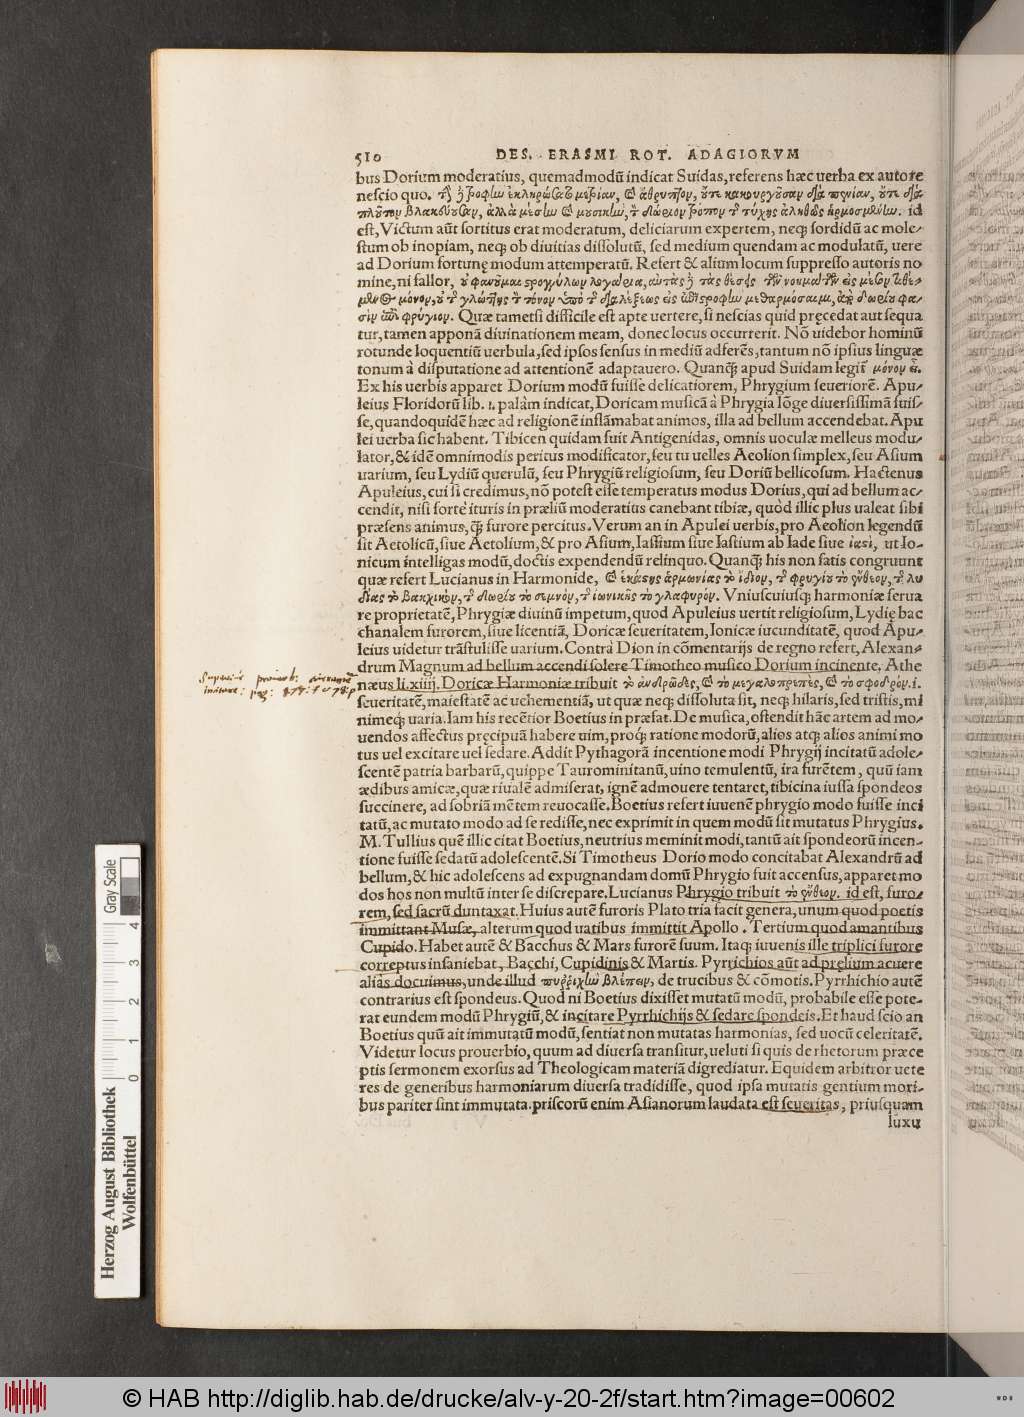 510 DES. ERASMI ROT. ADAGIORVM
bus Dorium moderatius, quemadmodũ indicat Suidas, referens hæc uerba ex autore
nescio quo.
id
est, Victum aut sortitus erat moderatum, deliciarum expertem, neqꝫ sordidũ ac mole⸗
stum ob inopiam, neqꝫ ob diuitias dissolutũ, sed medium quendam ac modulatũ, uere
ad Dorium fortunę modum attemperatũ. Refert & alium locum suppresso autoris no
mine, ni fallor,
Quæ tametsi difficile est apte uertere, si nescias quid pręcedat aut sequa
tur, tamen apponã diuinationem meam, donec locus occurrerit. Nõ uidebor hominũ
rotunde loquentiũ uerbula, sed ipsos sensus in mediũ adferẽs, tantum nõ ipsius linguæ
tonum à disputatione ad attentionẽ adaptauero. Quanqꝫ apud Suidam legit̃ μόνον
Ex his uerbis apparet Dorium modũ fuisse delicatiorem, Phrygium seueriorẽ. Apu⸗
leius Floridorũ lib. 1. palàm indicat, Doricam musicã à Phrygia lõge diuersissimã fuis⸗
se, quandoquidẽ hæc ad religionẽ inflãmabat animos, illa ad bellum accendebat. Apu
lei uerba sic habent. Tibicen quidam fuit Antigenidas, omnis uoculæ melleus modu⸗
lator, & idẽ omnimodis peritus modificator, seu tu uelles Aeolion simplex, seu Asium
uarium, seu Lydiũ querulũ, seu Phrygiũ religiosum, seu Doriũ bellicosum. Hactenus
Apuleius, cui si credimus, nõ potest esse temperatus modus Dorius, qui ad bellum ac⸗
cendit, nisi forte ituris in præliũ moderatius canebant tibiæ, quòd illic plus ualeat sibi
præsens animus, qꝫ furore percitus. Verum an in Apulei uerbis, pro Aeolion legendũ
sit Aetolicũ, siue Aetolium, & pro Asium, Iassium siue Iastium ab Iade siue ἰαςὶ, ut Io⸗
nicum intelligas modũ, doctis expendendũ relinquo. Quanqꝫ his non satis congruunt
quæ refert Lucianus in Harmonide, καὶ ἑκάσης ἁρμονίας τὸ ἴδιον, τ̃ φρυγίου τὸ ἔνθεον, τ̃ λυ
δίας τὸ βακχικὸν, τ̃ δωρίου τὸ σεμνὸν, τ̃ ἰωνικῆς τὸ γλαφυρόν. Vniuscuiusqꝫ harmoniæ serua
re proprietatẽ, Phrygiæ diuinũ impetum, quod Apuleius uertit religiosum, Lydię bac
chanalem furorem, siue licentiã, Doricæ seueritatem, Ionicæ iucunditatẽ, quod Apu⸗
leius uidetur trãstulisse uarium. Contrà Dion in cõmentarijs de regno refert, Alexan⸗
drum Magnum ad bellum accendi solere Timotheo musico Dorium incinente. Athe
næus li. xiiij. Doricæ Harmoniæ tribuit τὸ ἀνδρῶδες, καὶ τὸ μεγαλοπρεπὲς, καὶ τὸ σφοδρὸν. i.
seueritatẽ, maiestatẽ ac uehementiã, ut quæ neqꝫ dissoluta sit, neqꝫ hilaris, sed tristis, mi
nimeqꝫ uaria. Iam his recẽtior Boetius in præfat. De musica, ostendit hãc artem ad mo⸗
uendos affectus pręcipuã habere uim, proqꝫ ratione modorũ, alios atqꝫ alios animi mo
tus uel excitare uel sedare. Addit Pythagorã incentione modi Phrygij incitatũ adole⸗
scentẽ patria barbarũ, quippe Taurominitanũ, uino temulentũ, ira furẽtem, quũ iam
ædibus amicæ, quæ riualẽ admiserat, ignẽ admouere tentaret, tibicina iussa spondeos
succinere, ad sobriã mẽtem reuocasse. Boetius refert iuuenẽ phrygio modo fuisse inci
tatũ, ac mutato modo ad se redisse, nec exprimit in quem modũ sit mutatus Phrygius.
M. Tullius quẽ illic citat Boetius, neutrius meminit modi, tantũ ait spondeorũ incen⸗
tione fuisse sedatũ adolescentẽ. Si Timotheus Dorio modo concitabat Alexandrũ ad
bellum, & hic adolescens ad expugnandam domũ Phrygio fuit accensus, apparet mo
dos hos non multũ inter se discrepare. Lucianus Phrygio tribuit τὸ ἔνθεον. id est, furo⸗
rem, sed sacrũ duntaxat. Huius autẽ furoris Plato tria facit genera, unum quod poetis
immittant Musæ, alterum quod uatibus immittit Apollo. Tertium quod amantibus
Cupido. Habet autẽ & Bacchus & Mars furorẽ suum. Itaqꝫ iuuenis ille triplici furore
correptus insaniebat, Bacchi, Cupidinis & Martis. Pyrrichios aũt ad pręlium acuere
aliàs docuimus, unde illud πυῤῥιχὴν βλέπειν, de trucibus & cõmotis. Pyrrhichio autẽ
contrarius est spondeus. Quod ni Boetius dixisset mutatũ modũ, probabile esse pote⸗
rat eundem modũ Phrygiũ, & incitare Pyrrhichijs & sedare spondeis. Et haud scio an
Boetius quũ ait immutatũ modũ, sentiat non mutatas harmonias, sed uocũ celeritatẽ.
Videtur locus prouerbio, quum ad diuersa transitur, ueluti si quis de rhetorum præce
ptis sermonem exorsus ad Theologicam materiã digrediatur. Equidem arbitror uete
res de generibus harmoniarum diuersa tradidisse, quod ipsa mutatis gentium mori⸗
bus pariter sint immutata. priscorũ enim Asianorum laudata est seueritas, priusquam
luxu
Gray Scale
0 1 2 3 4
Herzog August Bibliothek
Wolfenbüttel
© HAB http://diglib.hab.de/drucke/alv-y-20-2f/start.htm?image=00602